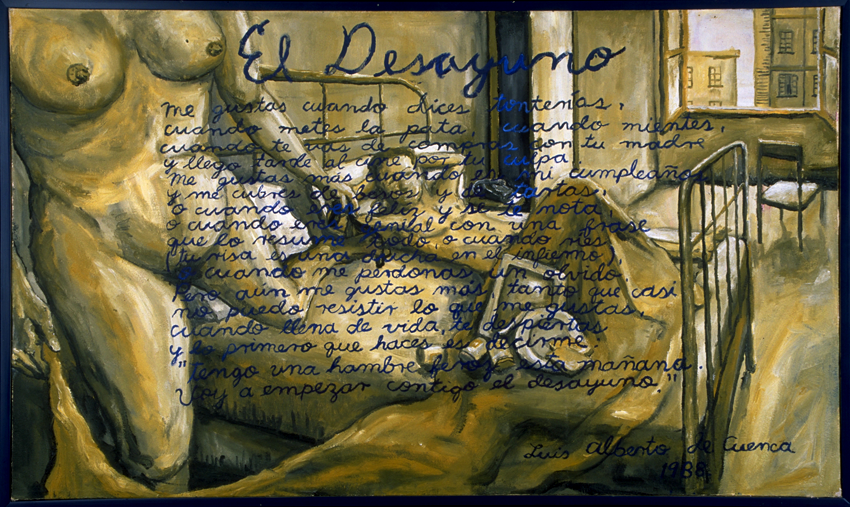 El Desayuno
Me gustas cuando dices tonterías,
cuando metes la pata, cuando mientes,
cuando te vas de compras con tu madre
y llego tarde al cine por tu culpa.
Me gustas más cuando es mi cumpleaños
y me cubres de besos y de tartas,
o cuando eres feliz y se te nota,
o cuando eres genial con una frase
que lo resume todo, o cuando ríes
(tu risa es una ducha en el infierno),
o cuando me perdonas un olvido.
Pero aún me gustas más, tanto que casi
no puedo resistir lo que me gustas,
cuando, llena de vida, te despiertas
y lo primero que haces es decirme:
"tengo una hambre feroz esta mañana.
Voy a empezar contigo el desayuno."
Luis Alberto de Cuenca